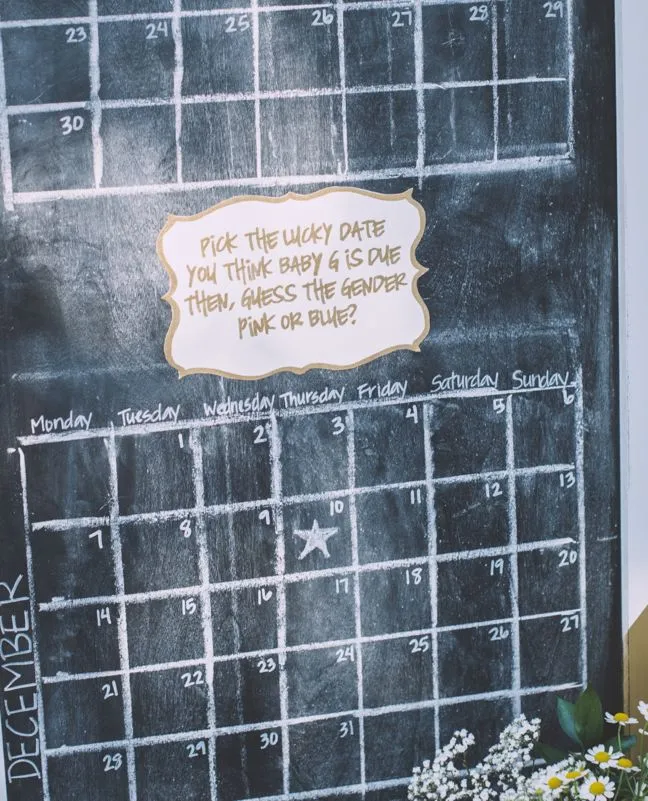 23 24 25 26 27 28 29
30
PICK THE LUCKY DATE
YOU THINK BABY G IS DUE
THEN, GUESS THE GENDER
PINK OR BLUE?
Monday Tuesday Wednesday Thursday Friday Saturday Sunday
1 2 3 4 5 6
7 8 9 10 11 12 13
14 15 16 17 18 19 20
21 22 23 24 25 26 27
28 29 30 31
DECEMBER